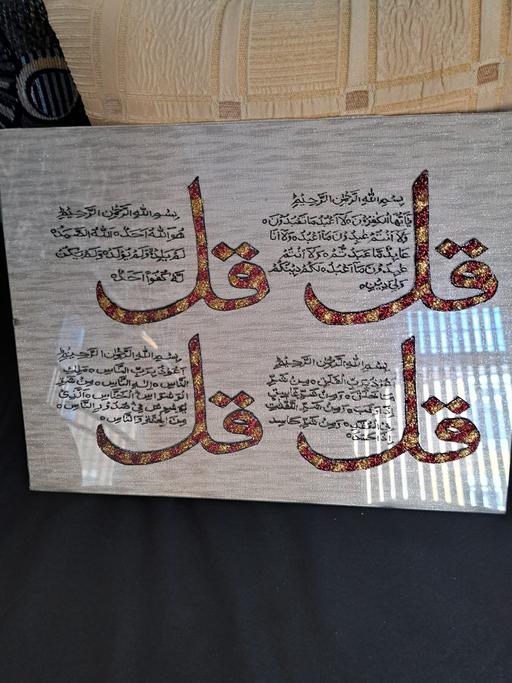 بِسْمِ اللهِ الرَّحْمٰنِ الرَّحِيْمِ
قل
يٰاَيُّهَا الْكٰفِرُوْنَ ۝ لَا اَعْبُدُ مَا تَعْبُدُوْنَ ۝
وَلَا اَنْتُمْ عٰبِدُوْنَ مَا اَعْبُدُ ۝ وَلَا اَنَا
عَابِدٌ مَّا عَبَدْتُّمْ ۝ وَلَا اَنْتُمْ
عٰبِدُوْنَ مَا اَعْبُدُ ۝ لَكُمْ دِيْنُكُمْ
وَلِيَ دِيْنِ ۝
بِسْمِ اللهِ الرَّحْمٰنِ الرَّحِيْمِ
قل
هُوَ اللهُ اَحَدٌ ۝ اَللهُ الصَّمَدُ ۝
لَمْ يَلِدْ ۝ وَلَمْ يُوْلَدْ ۝ وَلَمْ يَكُنْ
لَّهٗ كُفُوًا اَحَدٌ ۝
بِسْمِ اللهِ الرَّحْمٰنِ الرَّحِيْمِ
قل
اَعُوْذُ بِرَبِّ الْفَلَقِ ۝ مِنْ شَرِّ
مَا خَلَقَ ۝ وَمِنْ شَرِّ غَاسِقٍ
اِذَا وَقَبَ ۝ وَمِنْ شَرِّ النَّفّٰثٰتِ
فِي الْعُقَدِ ۝ وَمِنْ شَرِّ حَاسِدٍ
اِذَا حَسَدَ ۝
بِسْمِ اللهِ الرَّحْمٰنِ الرَّحِيْمِ
قل
اَعُوْذُ بِرَبِّ النَّاسِ ۝ مَلِكِ
النَّاسِ ۝ اِلٰهِ النَّاسِ ۝ مِنْ شَرِّ
الْوَسْوَاسِ الْخَنَّاسِ ۝ الَّذِيْ
يُوَسْوِسُ فِيْ صُدُوْرِ النَّاسِ ۝
مِنَ الْجِنَّةِ وَالنَّاسِ ۝